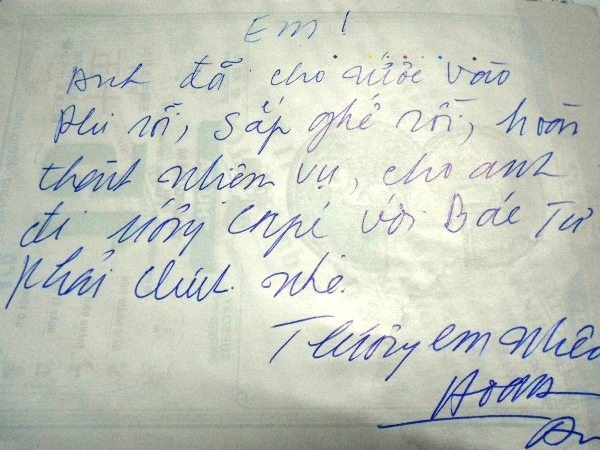 Em !
Anh đã cho nước vào
phi rồi, sắp ghế rồi, hoàn
thành nhiệm vụ, cho anh
đi uống Café với Bác Tư
phải chút nhé.
Thương em nhiều